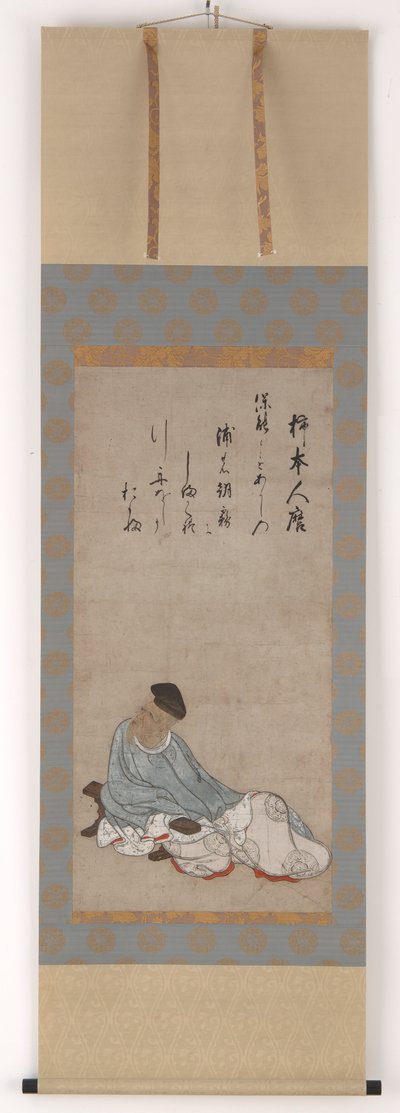 柿本人麿
保能〱とあかしの
浦の朝霧に
しまかくれ
行舟をしそ
おもふ